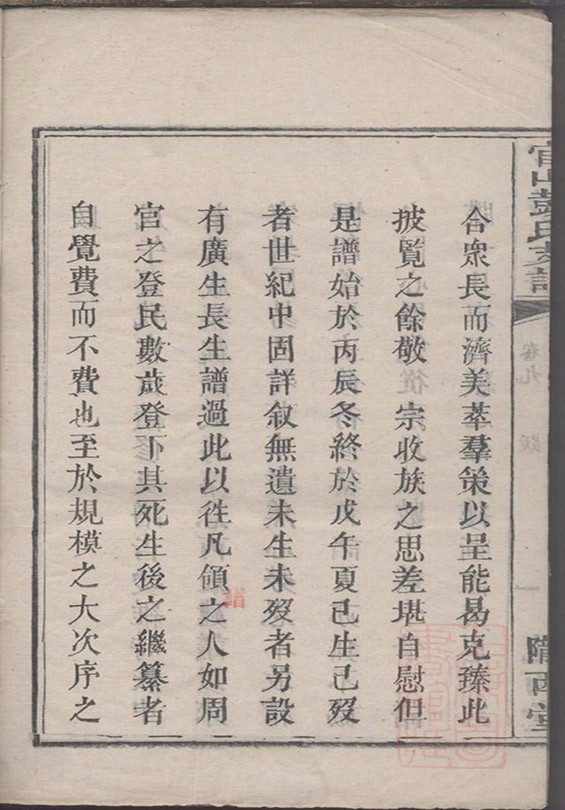 官山彭氏支譜
卷九
一
隴西堂
合衆長而濟美萃羣策以呈能曷克臻此
披覧之餘敬 宗收族之思差堪自慰但
是譜始於丙辰冬終於戊午夏已生已歿
者世紀中固詳敘無遺未生未歿者另設
有廣生長生譜過此以徃凡領之人如周
官之登民數歲登下其死生後之繼纂者
自覺費而不費也至於規模之大次序之
譜